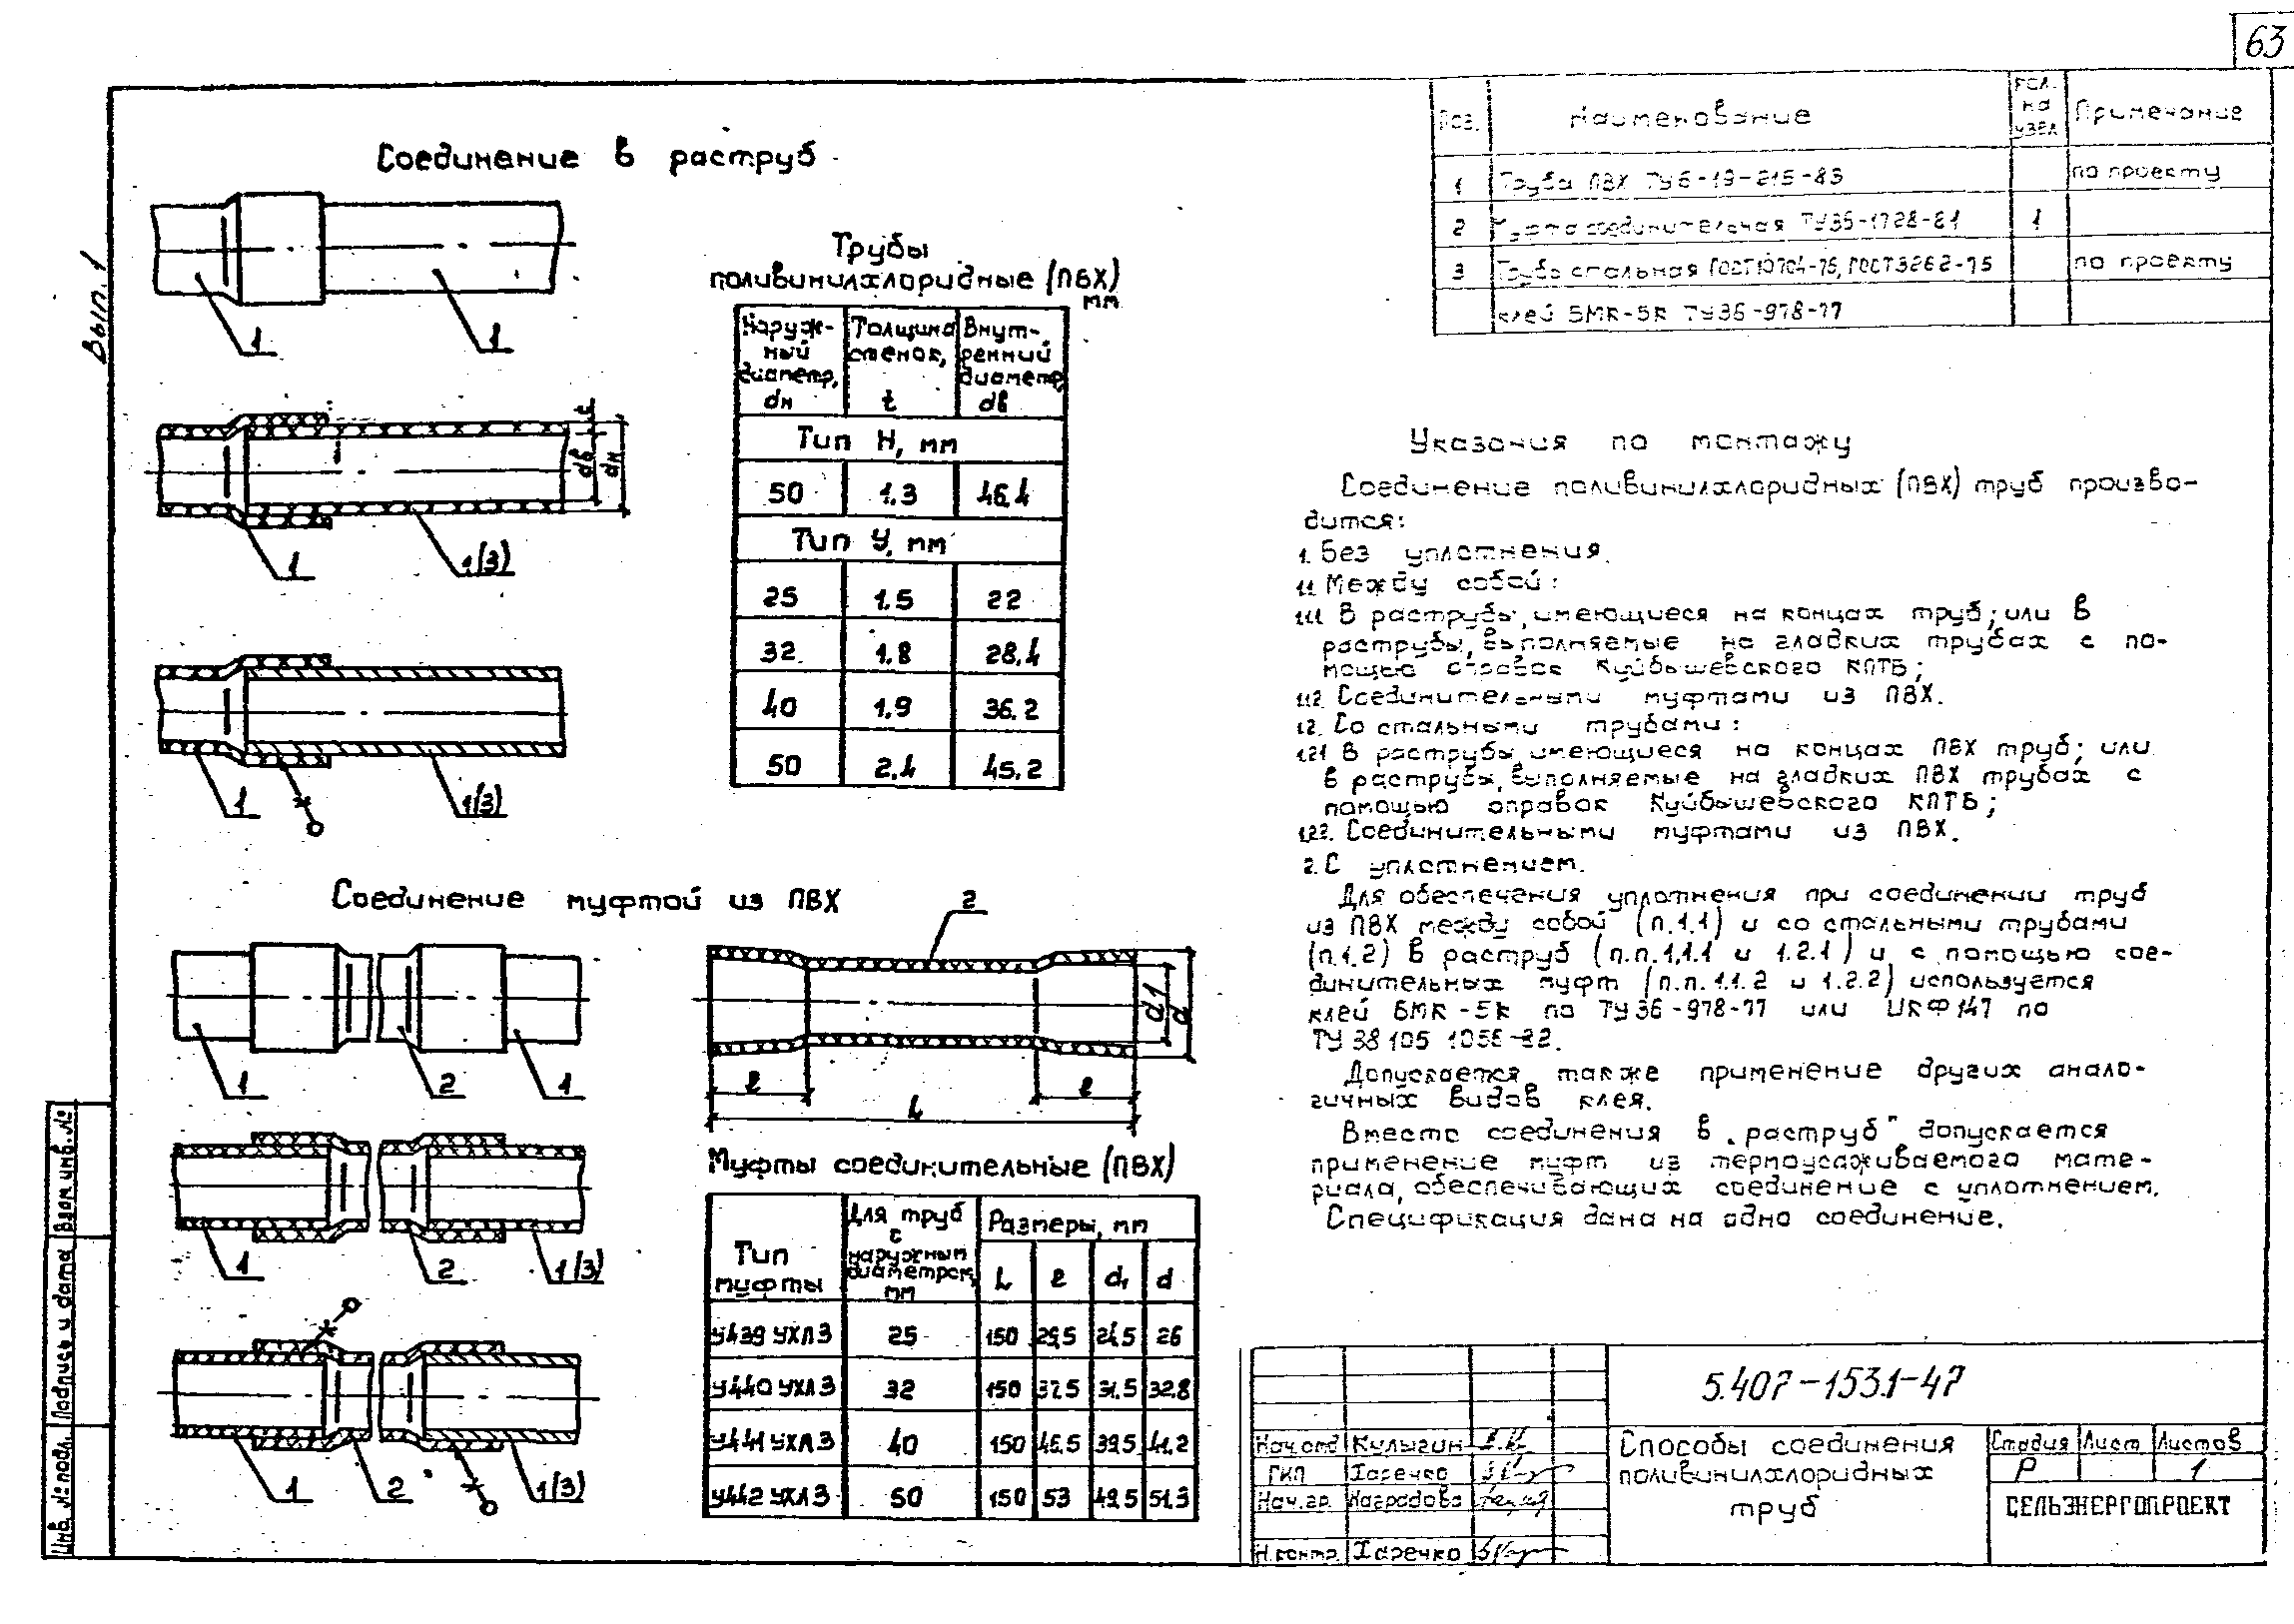 63
Вып. 1
Соединение в раструб
1
1
t
dв
dн
1
1(3)
1
1(3)
Трубы
поливинилхлоридные (ПВХ)
мм
Наруж-ный диаметр, dн | Толщина стенок, t | Внут-ренний диаметр, dв
Тип Н, мм
50 1.3 46,4
Тип У, мм
25 1.5 22
32 1.8 28,4
40 1.9 36.2
50 2.4 45.2
Соединение муфтой из ПВХ
1
2
1
1
2
1(3)
1
2
1(3)
2
d1
d
ℓ
ℓ
L
Муфты соединительные (ПВХ)
Тип муфты | Для труб с наружным диаметром, мм | Размеры, мм
L ℓ d₁ d
У439 УХЛ3 25 150 29,5 24,5 26
У440 УХЛ3 32 150 37.5 31.5 32.8
У441 УХЛ3 40 150 46.5 39.5 41.2
У442 УХЛ3 50 150 53 49.5 51.3
Поз. Наименование Кол. на узел Примечание
1 Труба ПВХ ТУ6-19-215-83 по проекту
2 Муфта соединительная ТУ36-1728-81 1
3 Труба стальная ГОСТ10704-76, ГОСТ3262-75 по проекту
клей БМК-5К ТУ36-978-77
Указания по монтажу
Соединение поливинилхлоридных (ПВХ) труб произво-
дится:
1. Без уплотнения.
1.1. Между собой:
1.1.1. В раструбы, имеющиеся на концах труб; или в
раструбы, выполняемые на гладких трубах с по-
мощью оправок Куйбышевского КПТБ;
1.1.2. Соединительными муфтами из ПВХ.
1.2. Со стальными трубами:
1.2.1. В раструбы, имеющиеся на концах ПВХ труб; или
в раструбы, выполняемые на гладких ПВХ трубах с
помощью оправок Куйбышевского КПТБ;
1.2.2. Соединительными муфтами из ПВХ.
2. С уплотнением.
Для обеспечения уплотнения при соединении труб
из ПВХ между собой (п.1.1) и со стальными трубами
(п.1.2) в раструб (п.п.1.1.1 и 1.2.1) и с помощью сое-
динительных муфт (п.п.1.1.2 и 1.2.2) используется
клей БМК-5К по ТУ36-978-77 или ЦКФ147 по
ТУ 38 105
Допускается также применение других анало-
гичных видов клея.
Вместо соединения в „раструб" допускается
применение муфт из термоусаживаемого мате-
риала, обеспечивающих соединение с уплотнением.
Спецификация дана на одно соединение.
5.407-153.1-47
Нач.отд Кулыгин
ГИП Харечко
Нач.гр. Наградова
Н.контр. Харечко
Способы соединения
поливинилхлоридных
труб
Стадия Лист Листов
Р 1
СЕЛЬЭНЕРГОПРОЕКТ
Инв. № подл. Подпись и дата Взам инв. №